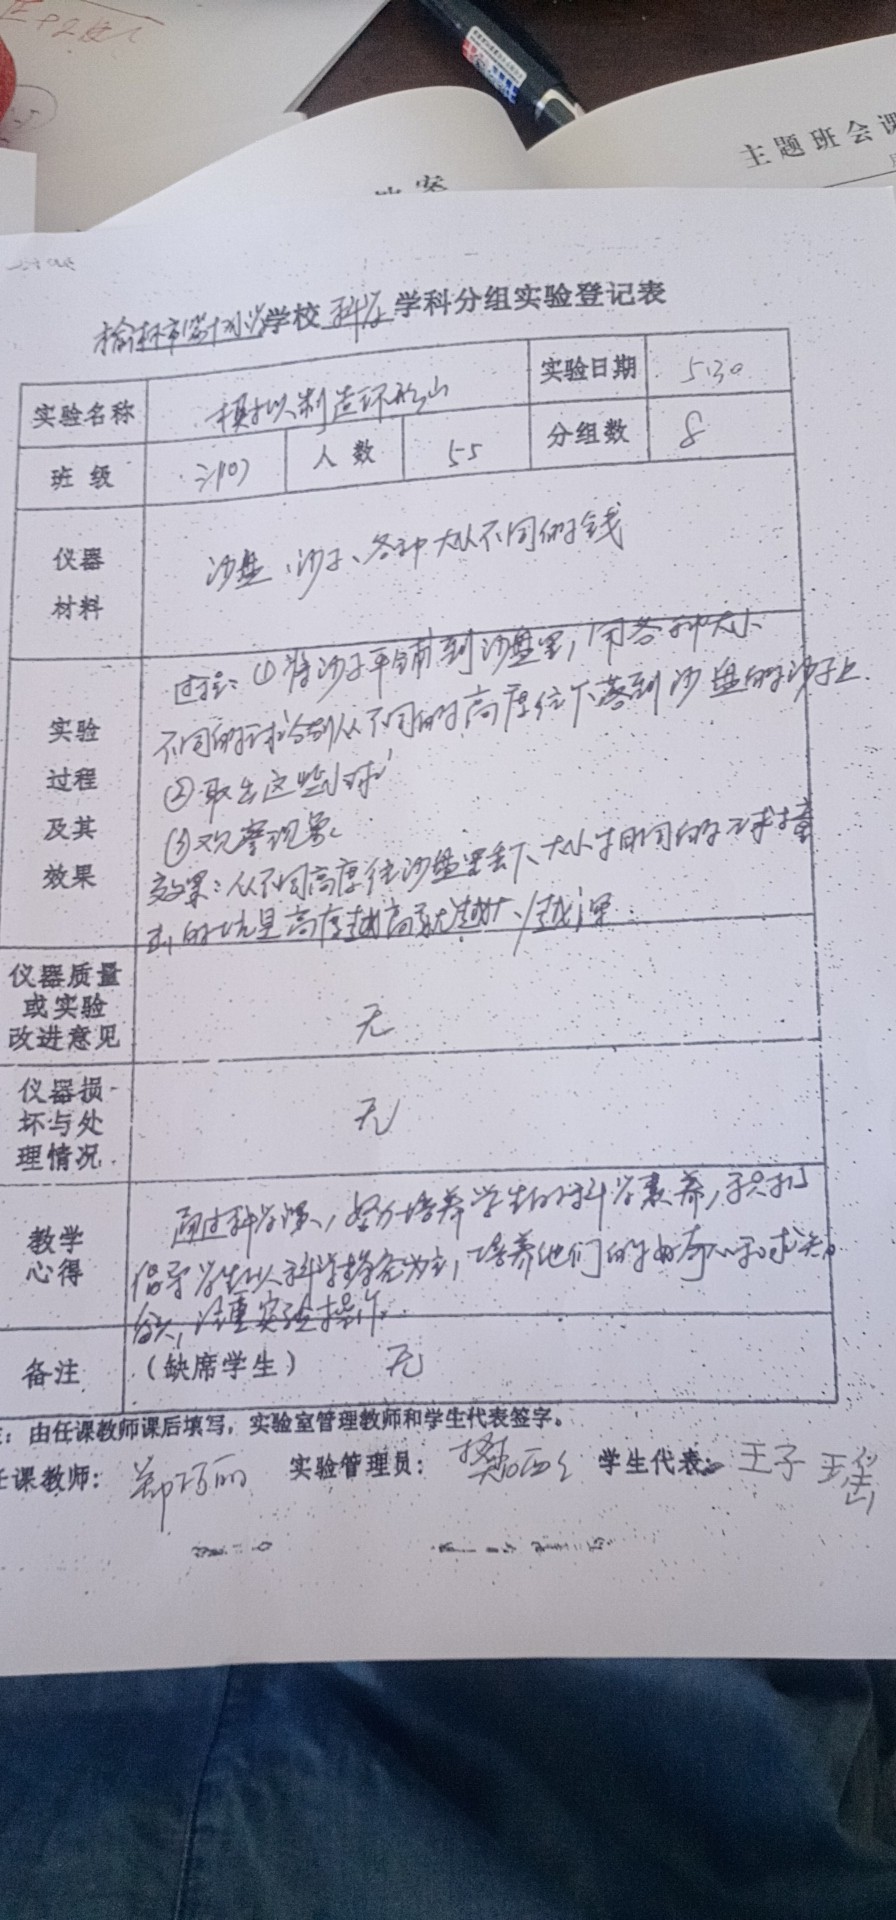 主题班会课
答案
榆林市第十小学校 科学 学科分组实验登记表
实验名称 模拟制造环形山 实验日期 5.30
班级 三(10) 人数 55 分组数 8
仪器材料 沙盘、沙子、各种大小不同的
实验过程及其效果
过程:①将沙子平铺到沙盘里,用各种大小
不同的球分别从不同的高度往下落到沙盘的沙子上.
②取出这些小球
③观察现象
效果:从不同高度往沙盘里丢下、大小不同的球撞
击的坑是高度越高就越大/越深.
仪器质量或实验改进意见 无
仪器损坏与处理情况 无
教学心得
通过科学课,努力培养学生的科学素养,积极
倡导学生以科学探究为主,培养他们的好奇心和求知
欲,注重实验操作.
备注 (缺席学生) 无
:由任课教师课后填写,实验室管理教师和学生代表签字。
任课教师: 郑巧丽 实验管理员: 学生代表: 王子瑶